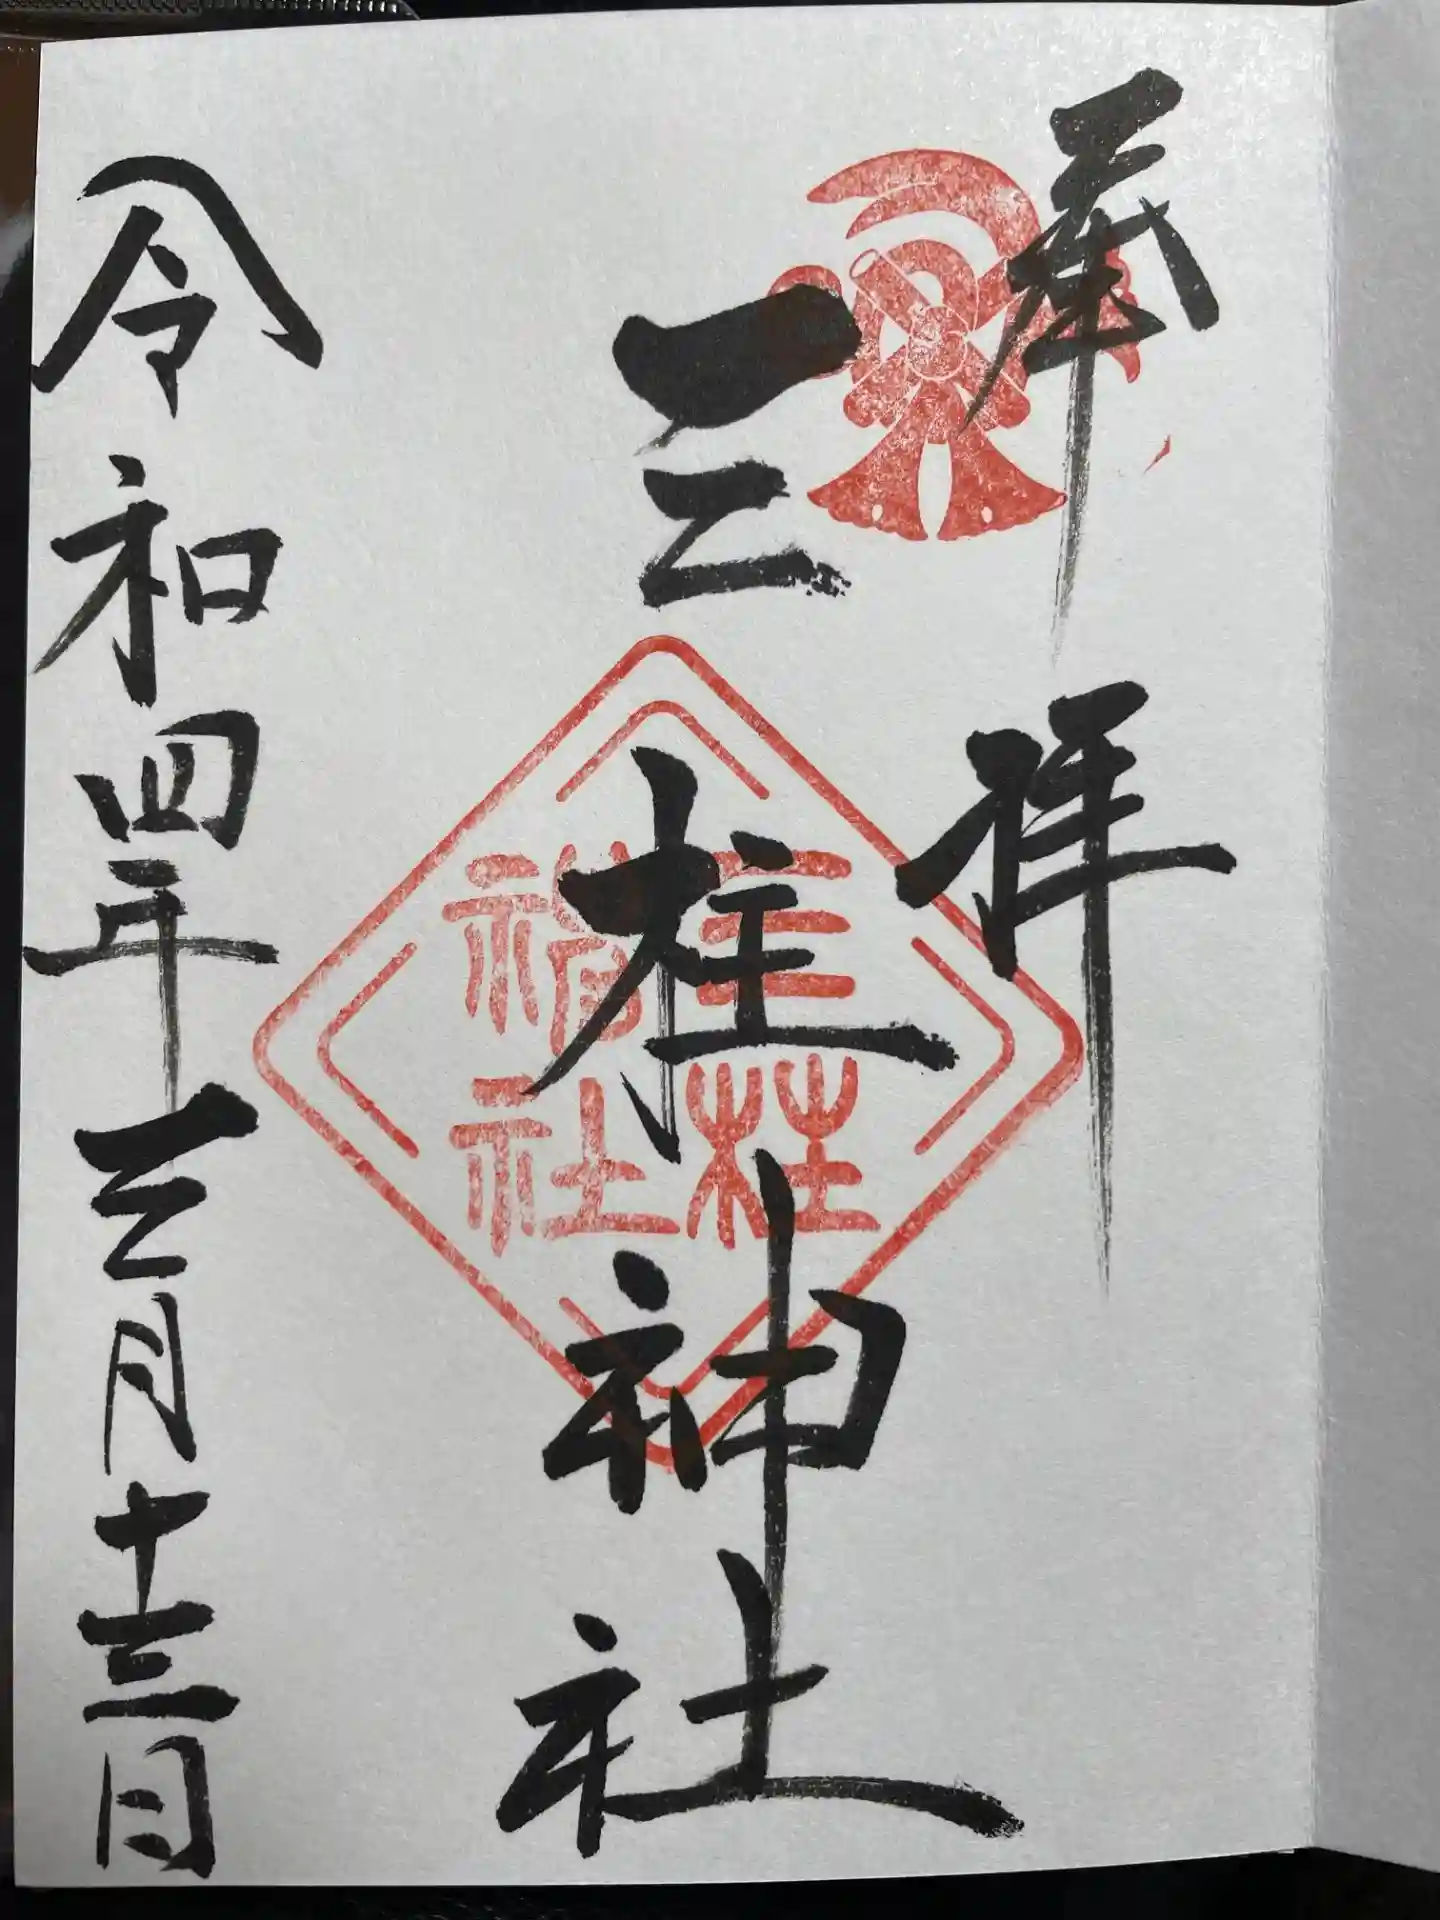 奉拝
三柱神社
三柱
神社
令和四年三月十三日